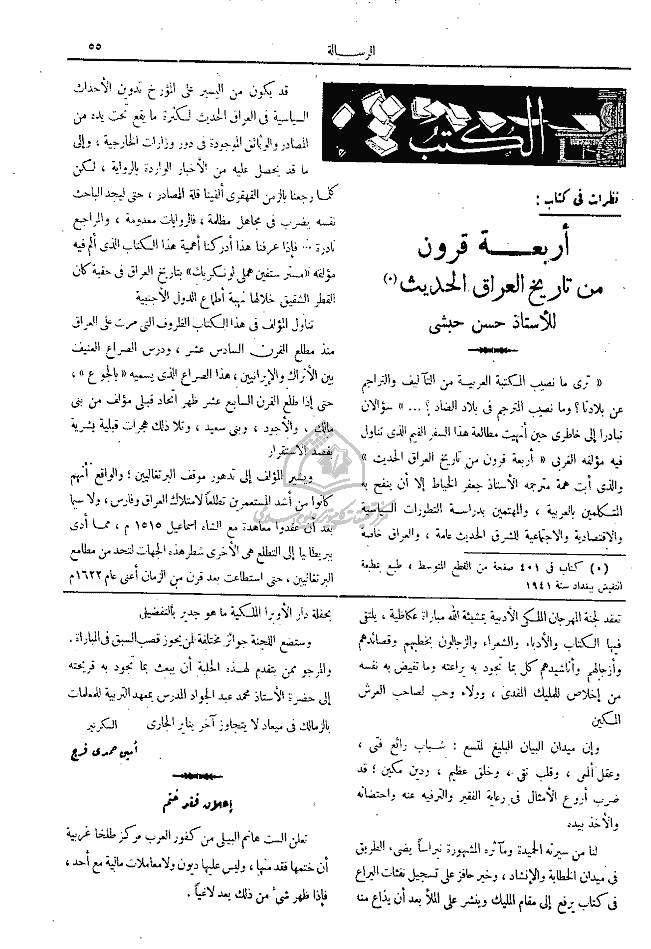 الرسالة
٥٥
الكتب
نظرات فى كتاب :
أربعة قرون
من تاريخ العراق الحديث (*)
للأستاذ حسن حبشى
« ترى ما نصيب المكتبة العربية من التآليف والتراجم
عن بلادنا ؟ وما نصيب المترجم فى بلاد الضاد ؟ ... » سؤالان
تبادرا إلى خاطرى حين أنهيت مطالعة هذا السفر القيم الذى تناول
فيه مؤلفه الغربى « أربعة قرون من تاريخ العراق الحديث »
والذى أبت همة مترجمه الأستاذ جعفر الخياط إلا أن ينفح به
المتكلمين بالعربية ، والمهتمين بدراسة التطورات السياسية
والاقتصادية والاجتماعية للشرق الحديث عامة ، والعراق خاصة
(*) كتاب فى ٤٠١ صفحة من القطع المتوسط ، طبع بمطبعة
التفيض ببغداد سنة ١٩٤١
قد يكون من اليسير على المؤرخ تدوين الأحداث
السياسية فى العراق الحديث لكثرة ما يقع تحت يده من
المصادر والوثائق الموجودة فى دور وزارات الخارجية ، وإلى
ما قد يحصل عليه من الأخبار الواردة بالرواية ، لكن
كلما رجعنا بالزمن القهقرى ألفينا قلة المصادر ، حتى ليجد الباحث
نفسه يضرب فى مجاهل مظلمة ، فالروايات معدومة ، والمراجع
نادرة ... فإذا عرفنا هذا أدركنا أهمية هذا الكتاب الذى ألم فيه
مؤلفه «مستر ستفين همسلى لونكريك» بتاريخ العراق فى حقبة كان
القطر الشقيق خلالها نهبة أطماع الدول الأجنبية
تناول المؤلف فى هذا الكتاب الظروف التى مرت على العراق
منذ مطلع القرن السادس عشر ، ودرس الصراع العنيف
بين الأتراك والإيرانيين ، هذا الصراع الذى يسميه « بالجوع » ،
حتى إذا طلع القرن السابع عشر ظهر اتحاد قبلى مؤلف من بنى
مالك ، والأجود ، وبنى سعيد ، وتلا ذلك هجرات قبلية بشرية
بقصد الاستقرار
ويشير المؤلف إلى تدهور موقف البرتغاليين ؛ والواقع أنهم
كانوا من أشد المستعمرين تطلعا لامتلاك العراق وفارس ، ولا سيما
بعد أن عقدوا معاهدة مع الشاه اسماعيل ١٥١٥ م ، مما أدى
ببريطانيا إلى التطلع هى الأخرى شطر هذه الجهات لتحد من مطامع
البرتغاليين ، حتى استطاعت بعد قرن من الزمان أعنى عام ١٦٢٢م
تعقد لجنة المهرجان الملكى الأدبية بمشيئة الله مباراة عكاظية ، يلتقى
فيها الكتاب والأدباء والشعراء والزجالون بخطبهم وقصائدهم
وأزجالهم وأناشيدهم كل بما تجود به براعته وما تفيض به نفسه
من إخلاص للمليك المفدى ، وولاء وحب لصاحب العرش
المكين
وإن ميدان البيان البليغ لمتسع : شباب رائع فتى ،
وعقل ألمى ، وقلب نقى ، وخلق عظيم ، ودين مكين ؛ قد
ضرب أروع الأمثال فى رعاية الفقير والترفيه عنه واحتضانه
والأخذ بيده
لنا من سيرته الحميدة ومآثره المشهورة نبراساً يضىء الطريق
فى ميدان الخطابة والإنشاد ، وخير حافز على تسجيل نفثات اليراع
فى كتاب يرفع إلى مقام المليك وينشر على الملأ بعد أن يذاع منه
بحفلة دار الأوبرا الملكية ما هو جدير بالتفضيل
وستضع اللجنة جوائز مختلفة لمن يحوز قصب السبق فى المباراة .
والمرجو ممن يتقدم لهذه الحلبة أن يبعث بما تجود به قريحته
إلى حضرة الأستاذ محمد عبد الجواد المدرس بمعهد التربية للمعلمات
بالزمالك فى ميعاد لا يتجاوز آخر يناير الجارى السكرتير
أمين حمدى فرج
إعلان فقد ختم
تعلن الست هانم البيلى من كفور العرب مركز طلخا غربية
أن ختمها فقد منها ، وليس عليها ديون ولا معاملات مالية مع أحد ،
فإذا ظهر شىء من ذلك يعد لاغياً .